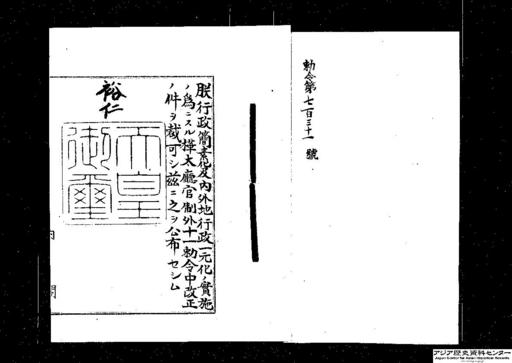 勅令第七百三十一號
朕行政簡素化及內外地行政一元化ノ實施
ノ爲ニスル樺太廳官制外十一勅令中改正
ノ件ヲ裁可シ茲ニ之ヲ公布セシム
裕仁
天皇御璽
內閣
アジア歴史資料センター
Japan Center for Asian Historical Records